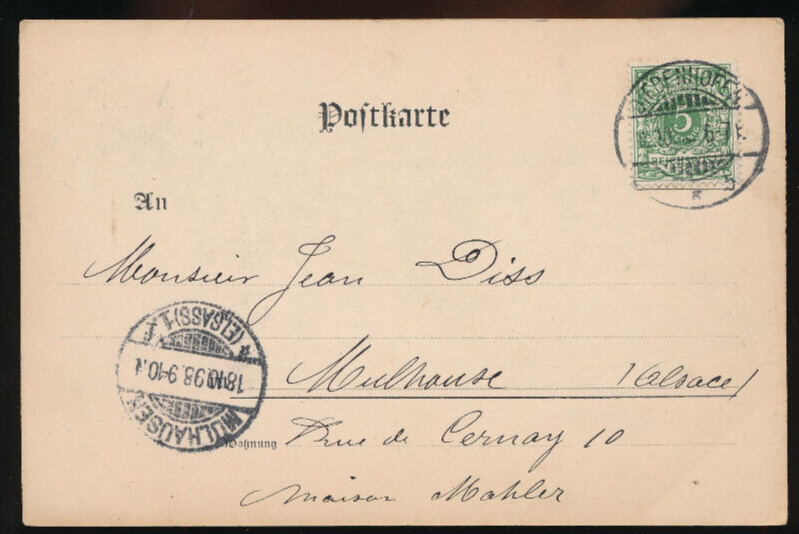 Postkarte
5
REICHSPOST
An
Monsieur Jean Diss
MÜLHAUSEN
18 10 98 9-10.V.
* (ELSASS) 1. F
Mulhouse (Alsace)
Wohnung Rue de Cernay 10
maison Mahler